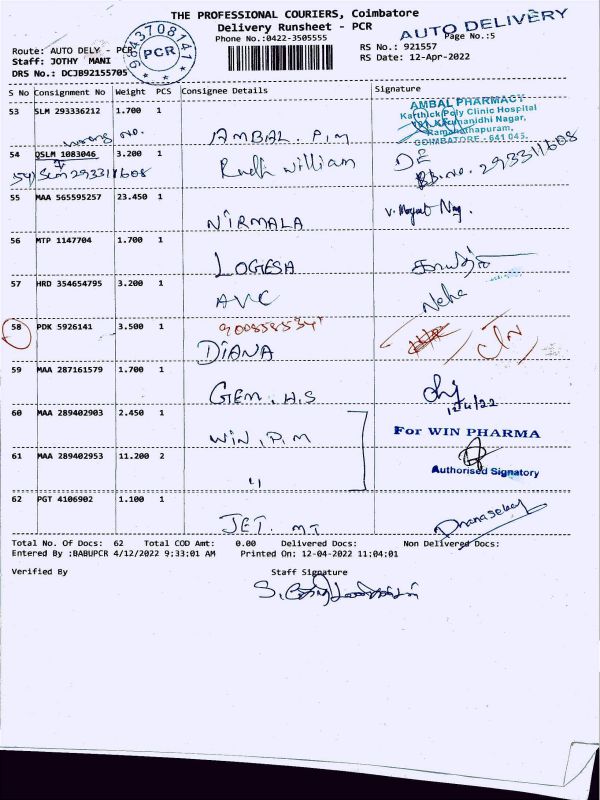 THE PROFESSIONAL COURIERS, Coimbatore
Delivery Runsheet - PCR
Phone No.:0422-3505555
AUTO DELIVERY
Page No.:5
Route: AUTO DELY - PCR
Staff: JOTHY MANI
DRS No.: DCJB92155705
9843708141
PCR
RS No.: 921557
RS Date: 12-Apr-2022
S No Consignment No Weight PCS Consignee Details Signature
53 SLM 293336212 1.700 1
AMBAL. P.M
AMBAL PHARMACY
Karthick Poly Clinic Hospital
Karunanidhi Nagar,
Ramanathapuram,
COIMBATORE - 641 045.
wrong no.
54 QSLM 1083046 3.200 1
54) SLM 293311608
Rudh william
DE
BB.no. 293311608
55 MAA 565595257 23.450 1
NIRMALA
56 MTP 1147704 1.700 1
LOGESA
57 HRD 354654795 3.200 1
AVC
Neha
58 PDK 5926141 3.500 1
DIANA
59 MAA 287161579 1.700 1
GEM. H.S
12/4/22
60 MAA 289402903 2.450 1
WIN. P.M
For WIN PHARMA
61 MAA 289402953 11.200 2
"
Authorised Signatory
62 PGT 4106902 1.100 1
JET. MT
Dhanasekar
Total No. Of Docs: 62 Total COD Amt: 0.00 Delivered Docs: Non Delivered Docs:
Entered By :BABUPCR 4/12/2022 9:33:01 AM Printed On: 12-04-2022 11:04:01
Verified By Staff Signature